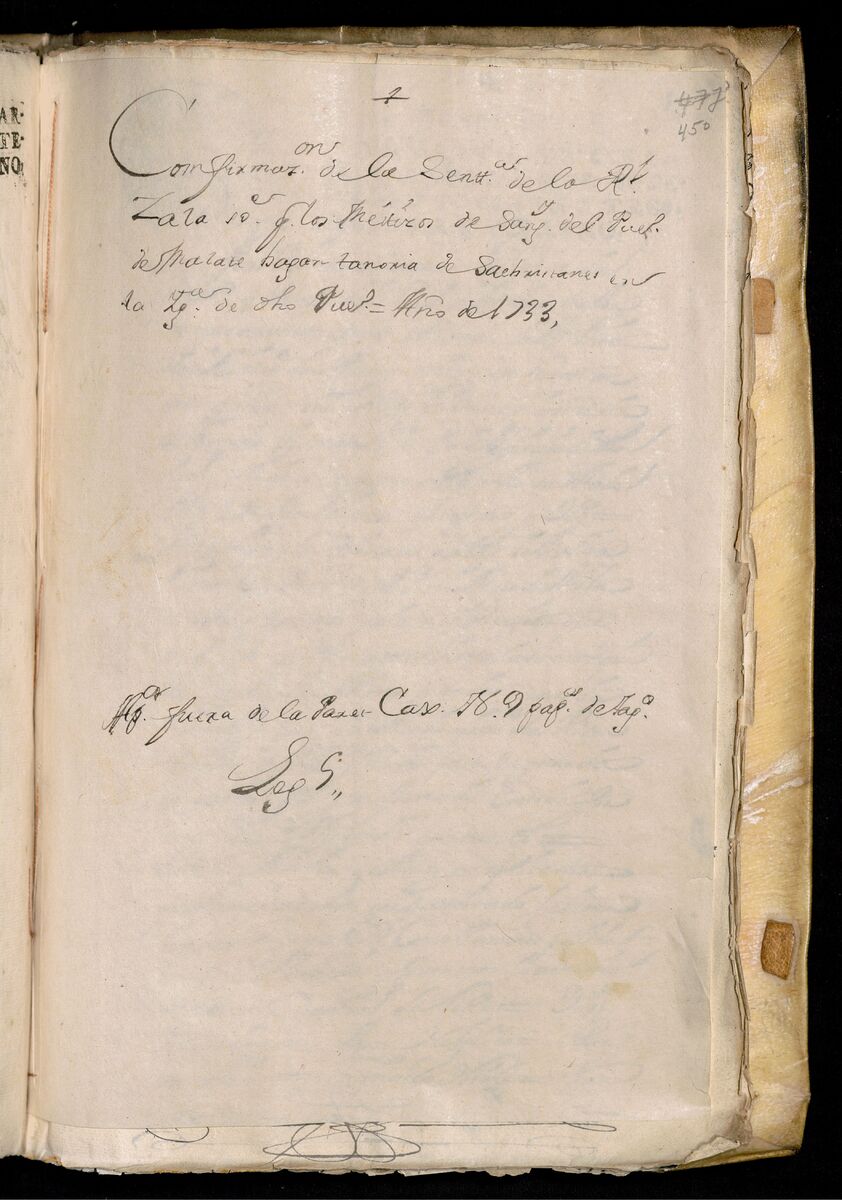 AR-
TE-
NO
1
477
450
Comfirmaz.on de la Sentt.a de la Rl
Zala sre. q. los Méstizos de Sang.y del Pueb.
de Malate hagan tanoria de Sachristanes en
la Ygª. de dho Pueb.º = Año de 1733,
fuera de la Cax. N. 9 pag.s de Tag.º
Leg 5,,